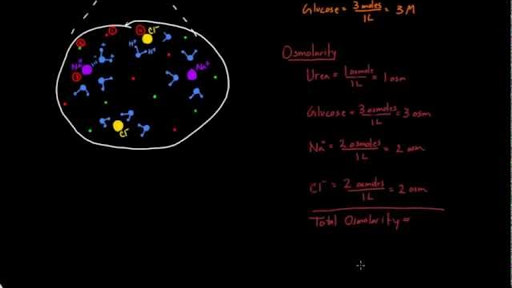 Glucose = 3 moles / 1L = 3 M
Osmolarity
Urea = 1 osmole / 1L = 1 osm
Glucose = 3 osmoles / 1L = 3 osm
Na+ = 2 osmoles / 1L = 2 osm
Cl- = 2 osmoles / 1L = 2 osm
Total Osmolarity =
Cl-
H+
H+
Na+
Na+
Cl-